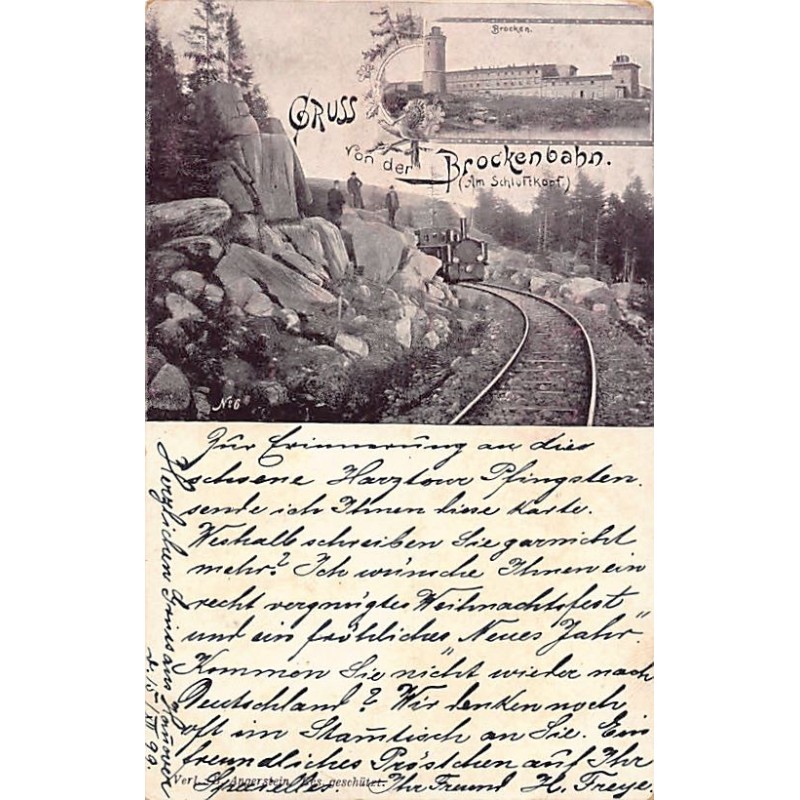 Brocken.
GRUSS
von der
Brockenbahn.
(Am Schluftkopf.)
No 6
Zur Erinnerung an die
schoene Harztour Pfingsten.
sende ich Ihnen diese Karte.
Weshalb schreiben Sie garnicht
mehr? Ich wünsche Ihnen ein
recht vergnügtes Weihnachtsfest
und ein fröhliches "Neues Jahr."
Kommen Sie nicht wieder nach
Deutschland? Wir denken noch
oft im Stam̅tisch an Sie. Ein
freundliches Pröstchen auf Ihr
Ihr Freund H. Freye,
Verl. Angerstein, ges. geschützt.
Herzlichen Gruss aus Hannover
d. 15/XII 99.